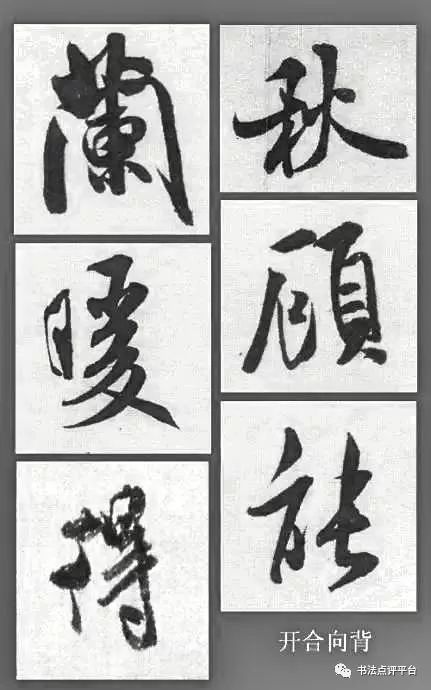 秋
顧
能
蘭
暖
得
开合向背
书法点评平台